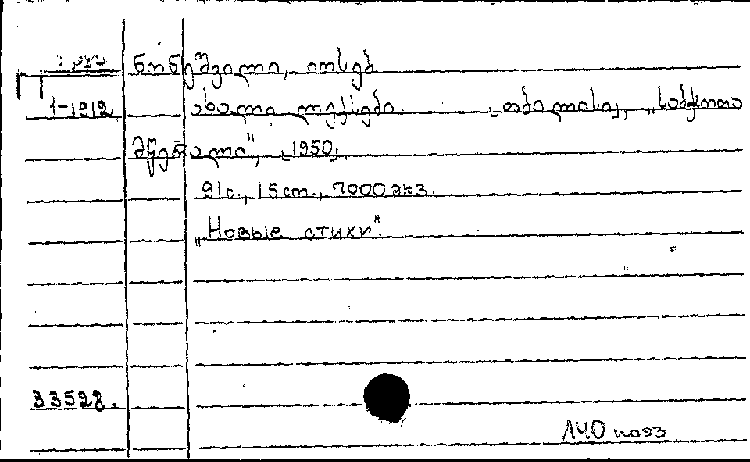 ნონეშვილი, იოსებ
1-1919 ახალი ლექსები. თბილისი, „საბჭოთა
მწერალი", 1950.
91с., 15 см., 7000 экз.
„Новые стихи".
33528.
140